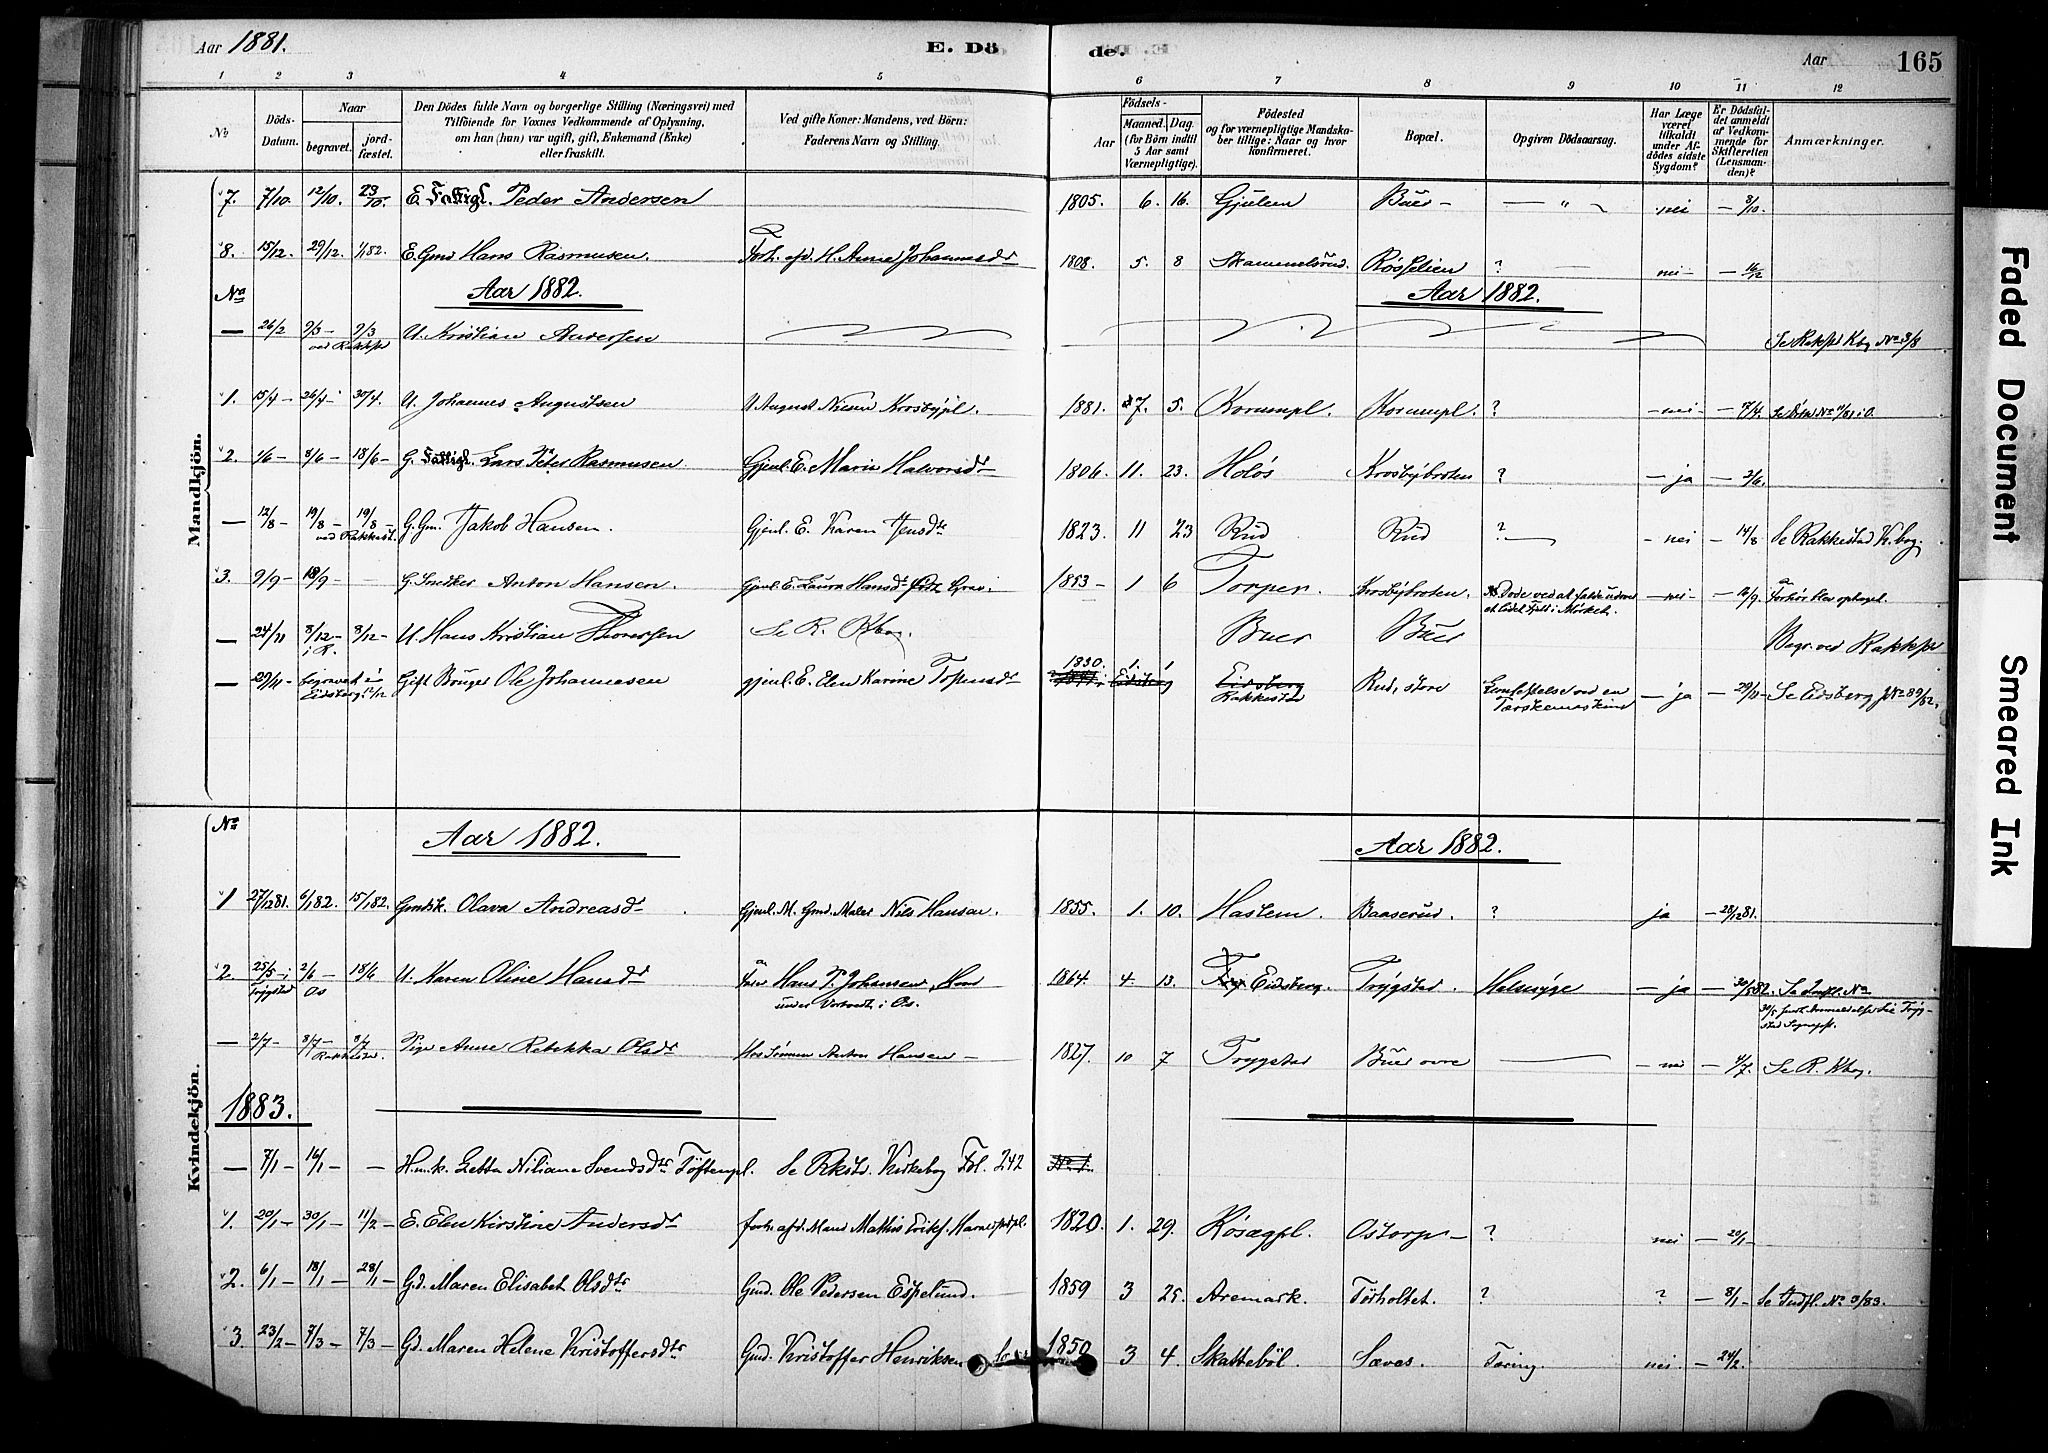 Aar 1881. E. Dö de. Aar 165
1 2 3 4 5 6 7 8 9 10 11 12
No
Döds-Datum.
Naar
begravet. jord-fæstet.
Den Dödes fulde Navn og borgerlige Stilling (Næringsvei) med
Tilföiende for Voxnes Vedkommende af Oplysning,
om han (hun) var ugift, gift, Enkemand (Enke)
eller fraskilt.
Ved gifte Koner: Mandens, ved Börn:
Faderens Navn og Stilling.
Födsels-
Aar Maaned. Dag.
(for Börn indtil 5 Aar samt Værnepligtige).
Födested
og for værnepligtige Mandskaber tillige: Naar og hvor konfirmeret.
Bopæl.
Opgiven Dödsaarsag.
Har Læge været tilkaldt under Afdödes sidste Sygdom?
Er Dödsfaldet anmeldt af Vedkommende for Skifteretten (Lensmanden)?
Anmærkninger.
Mandkjön.
7. 7/10. 12/10. 23/10. E. Fattigl. Peder Andersen 1805. 6. 16. Gjulem Buer — " nei — 8/10.
8. 15/12. 29/12. 1/1 82. E. Gmd Hans Rasmusen. Forh. afd. H. Anne Johannesdr 1808. 5. 8 Skammelsrud. Røsselien ? nei — 16/12
No Aar 1882. Aar 1882.
— 26/2 9/3 — 9/3 ved Rakkest U. Kristian Andersen Se Rakst Kbog No 3/8
1. 15/4 — 26/4 — 30/4. U. Johannes Augustsen U August Nilsen Krosbypl. 1881. 7. 5. Korumpl. Korumpl. ? — nei — 7/4.
2. 1/6 — 8/6 — 18/6 — G. Fattigl. Lars Peter Rasmusen Gjenl. E. Maria Halvorsdr 1806. 11. 23. Holøs Krosbybroten ? — ja — 2/6.
— 12/8 — 19/8 — 19/8 — ved Rakkest. G. Gm. Jakob Hansen. Gjenl. E. Karen Jensdtr 1823. 11 23 Rud Rud ? — nei — 14/8 Se Rakkestad K.bog.
3. 9/9 — 18/9 — G. Snedker Anton Hansen. Gjenl. E. Laura Hansdtr 1853 — 1 6 Torper Krosbybroten. Døde ved at falde — nei — 16/9. Forhør blev optaget.
— 24/11 8/12 — 8/12 — i R. U. Hans Kristian Thoresen Se R. Kbog. Buer Buer Begr. ved Rakkest
— 29/11 begravet i Eidsberg 12/12 Gift Bruger Ole Johannesen gjenl. E. Elen Karine 1830. 1. 1 Eidsberg Rakkestad Rud, store — ja — 29/11 — Se Eidsberg No 89/82.
Kvindekjön.
No Aar 1882. Aar 1882.
1 27/12 81. 6/1 82. 15/1 82. Gmdsk. Olava Andreasdr. Gjenl. M. Gmd. Maler Nils Hansen. 1855. 1. 10. Haslem. Baaserud. ? ja — 28/12 81.
2. 25/5 — i Trygstad 2/6 — Os 18/6 U. Karen Oline Hansdr Far Hans P. Johansen 1864. 4 13. Eidsberg. Trygstad. — ja — 30/5 82.
— 2/7 — 8/7 — 8/7 Rakkestad. Pige Anne Rebekka Olsdr Hos Sønnen Anton Hansen — 1827. 10 7 Trygstad Buer øvre — nei — 4/7. Se R. Kbog.
1883.
— 7/1 — 16/1 — H.m.k. Letta Niliane Svendsdtr Toftenpl. Se Rkstd. Kirkebog Fol. 242 No 1.
1. 20/1 — 30/1 — 11/2 — E. Elen Kirstine Andersdr 1820. 1. 29. Kosagpl. Ostorp — ? nei — 20/1 —
2. 6/1 — 18/1 — 28/1 — Gd. Maren Elisabet Olsdtr Gmd. Ole Pedersen Espelund. 1859 3 25. Aremark. Torholtet. ? ? — 8/1 — Se Indfl. No 3/83.
3. 23/2 — 7/3 — 7/3 — Gd. Maren Helene Kristoffersdtr Gmd. Kristoffer Henriksen 1850 3 4. Skattebøl. Sæves. Tæring. nei. — 24/2.
Faded Document
Smeared Ink